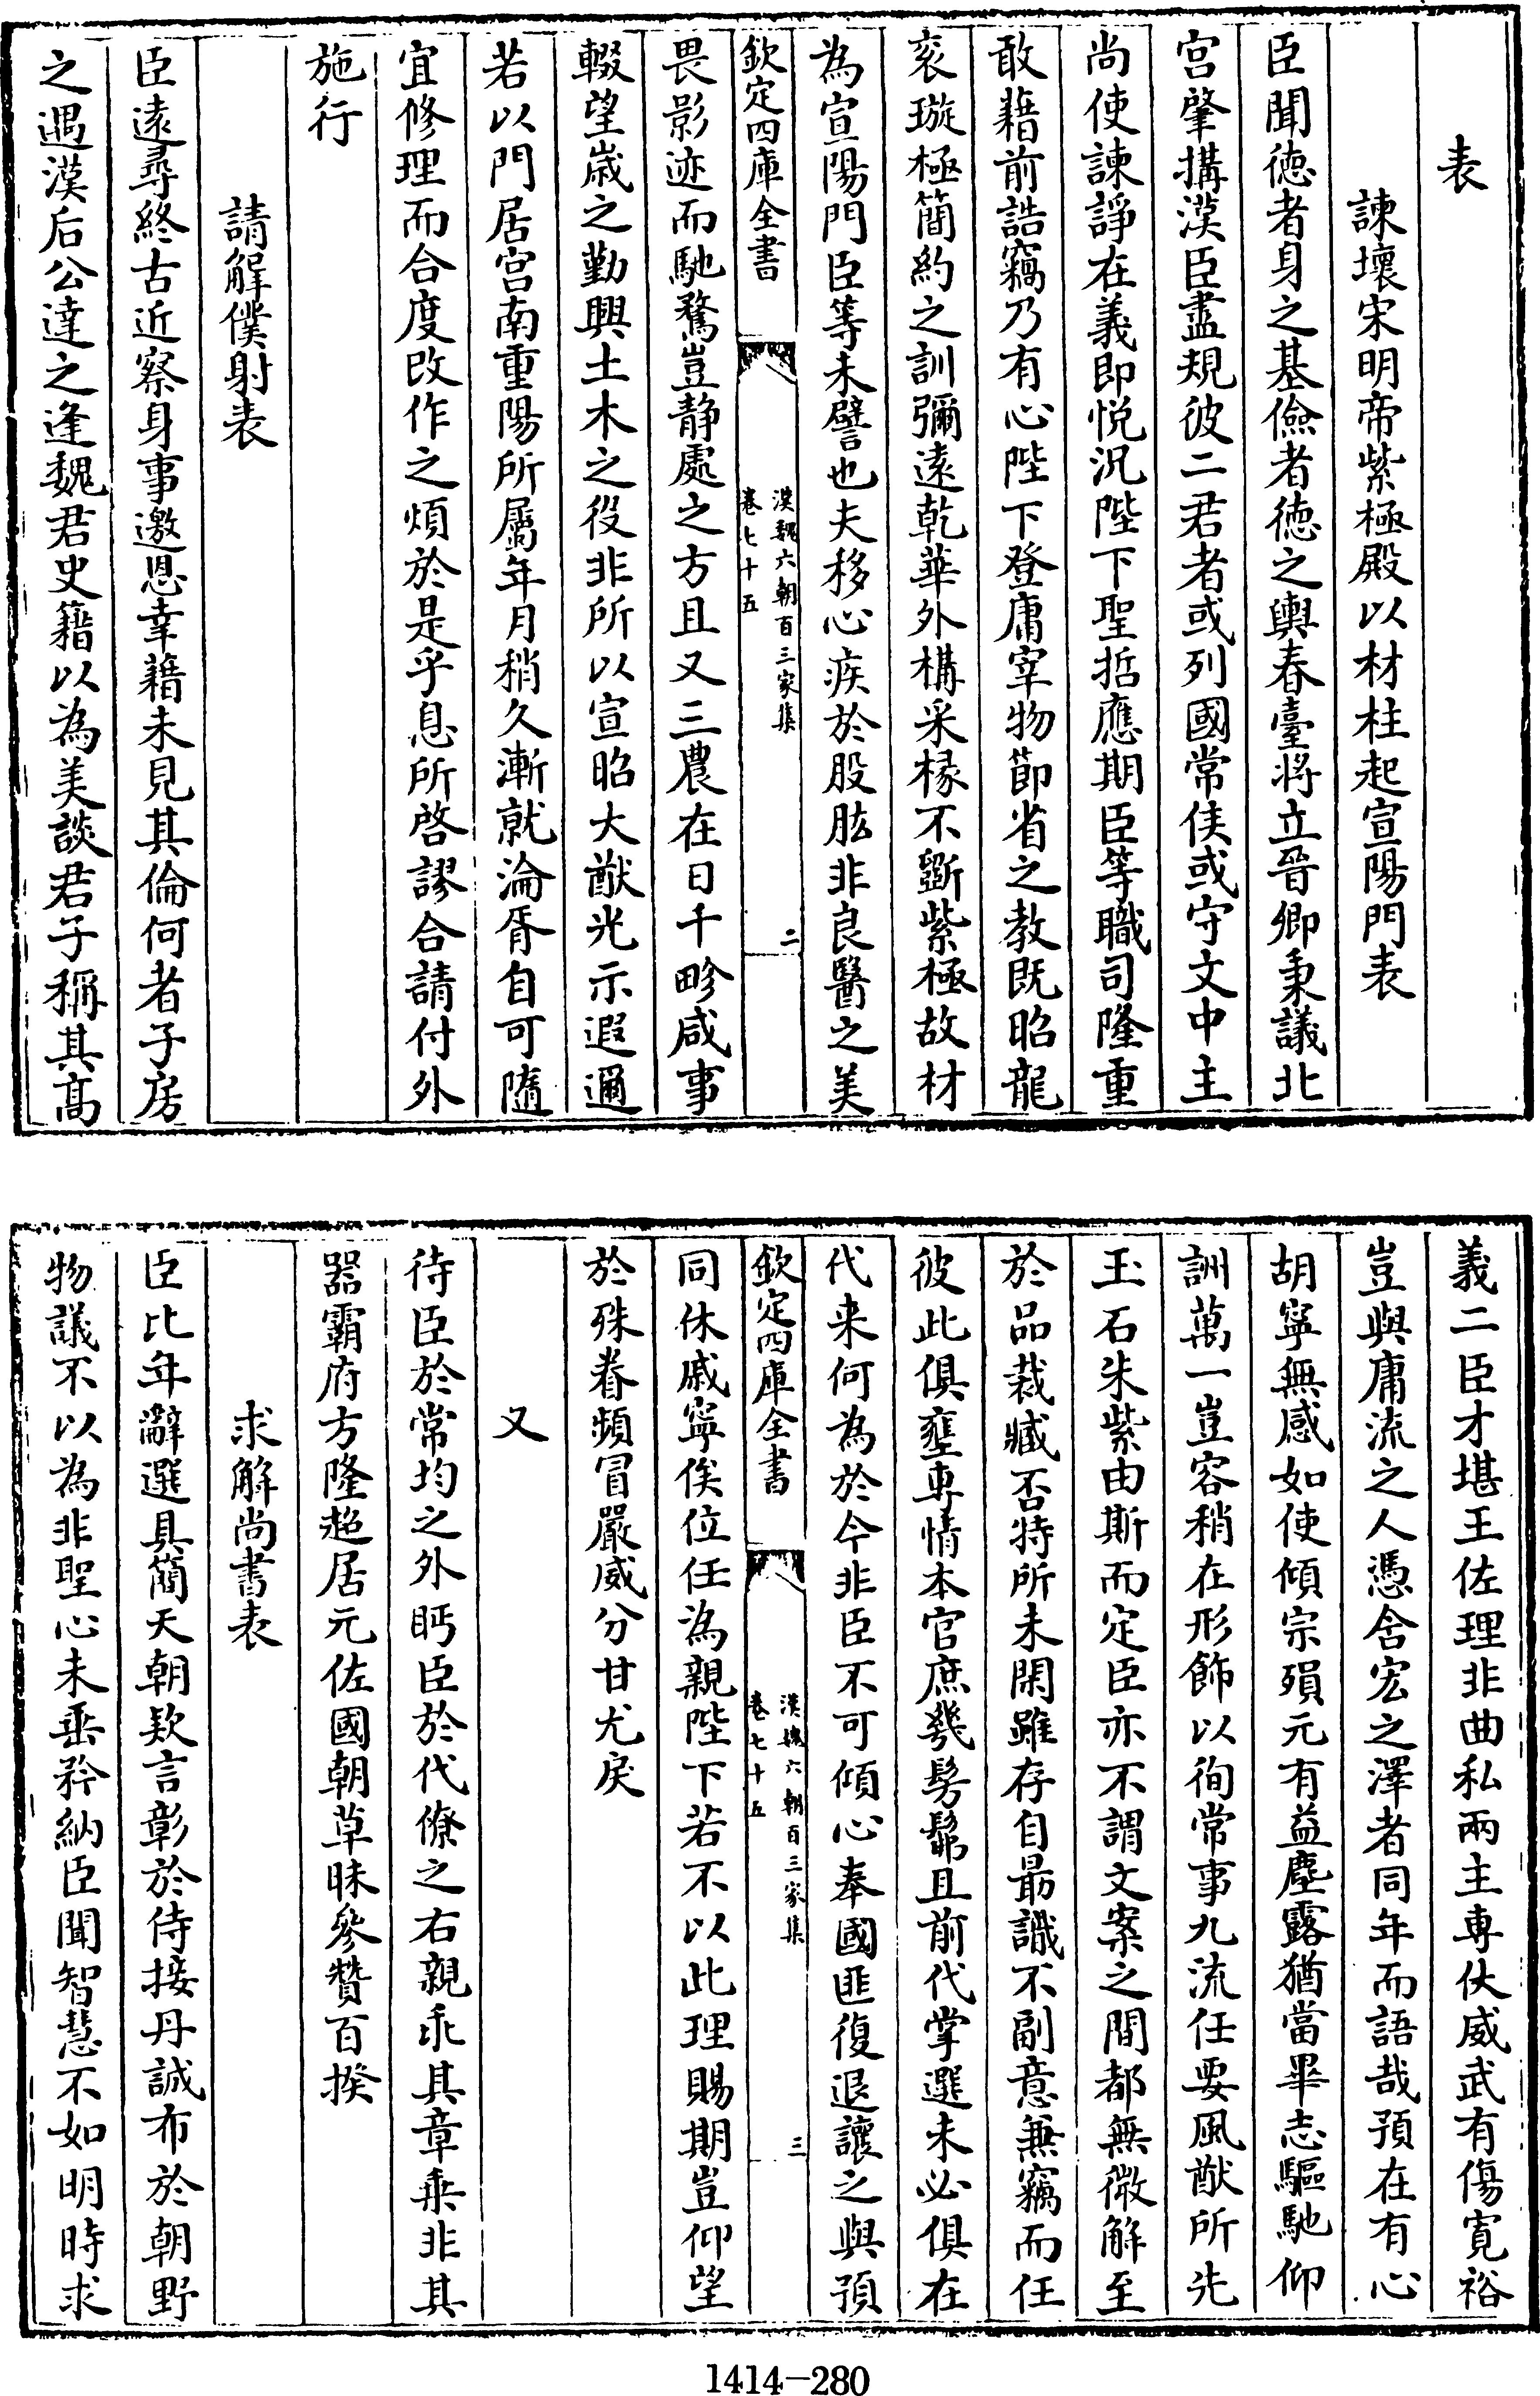 表
諫壞宋明帝紫極殿以材柱起宣陽門表
臣聞徳者身之基儉者徳之輿春臺將立晉卿秉議北
宫肇構漢臣盡規彼二君者或列國常侯或守文中主
尚使諫諍在義即悦況陛下聖哲應期臣等職司隆重
敢藉前誥竊乃有心陛下登庸宰物節省之教既昭龍
衮璇極簡約之訓彌遠乾華外構采椽不斵紫極故材
為宣陽門臣等未譬也夫移心疾於股肱非良醫之美
欽定四庫全書
漢魏六朝百三家集
卷七十五
二
畏影迹而馳騖豈静處之方且又三農在日千畛咸事
輟望歲之勤興土木之役非所以宣昭大猷光示遐邇
若以門居宫南重陽所屬年月稍久漸就淪胥自可隨
宜修理而合度改作之煩於是乎息所啓謬合請付外
施行
請解僕射表
臣逺尋終古近察身事邀恩幸藉未見其倫何者子房
之遇漢后公達之逢魏君史籍以為美談君子稱其髙
義二臣才堪王佐理非曲私兩主専仗威武有傷寛裕
豈與庸流之人憑含宏之澤者同年而語哉預在有心
胡寧無感如使傾宗殞元有益塵露猶當畢志驅馳仰
詶萬一豈容稍在形飾以徇常事九流任要風猷所先
玉石朱紫由斯而定臣亦不謂文案之間都無微解至
於品裁臧否特所未閑雖存自朂識不副意兼竊而任
彼此俱壅専情本官庶幾髣髴且前代掌選未必俱在
代来何為於今非臣不可傾心奉國匪復退讓之與預
欽定四庫全書
漢魏六朝百三家集
卷七十五
三
同休戚寧俟位任為親陛下若不以此理賜期豈仰望
於殊眷頻冒嚴威分甘尤戾
又
待臣於常均之外眄臣於代僚之右親乖其章乗非其
器霸府方隆超居元佐國朝草昧參贊百揆
求解尚書表
臣比年辭選具簡天朝欵言彰於侍接丹誠布於朝野
物議不以為非聖心未垂矜納臣聞智慧不如明時求
1414-280